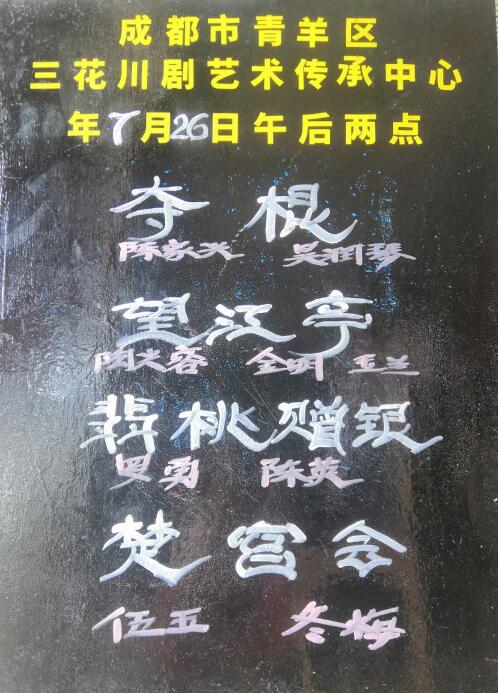 成都市青羊区
三花川剧艺术传承中心
年7月26日午后两点
夺棍
陈家兴 吴润琴
望江亭
陶文蓉 全明 玉兰
翡桃赠银
罗勇 陈英
楚宫会
伍五 冬梅